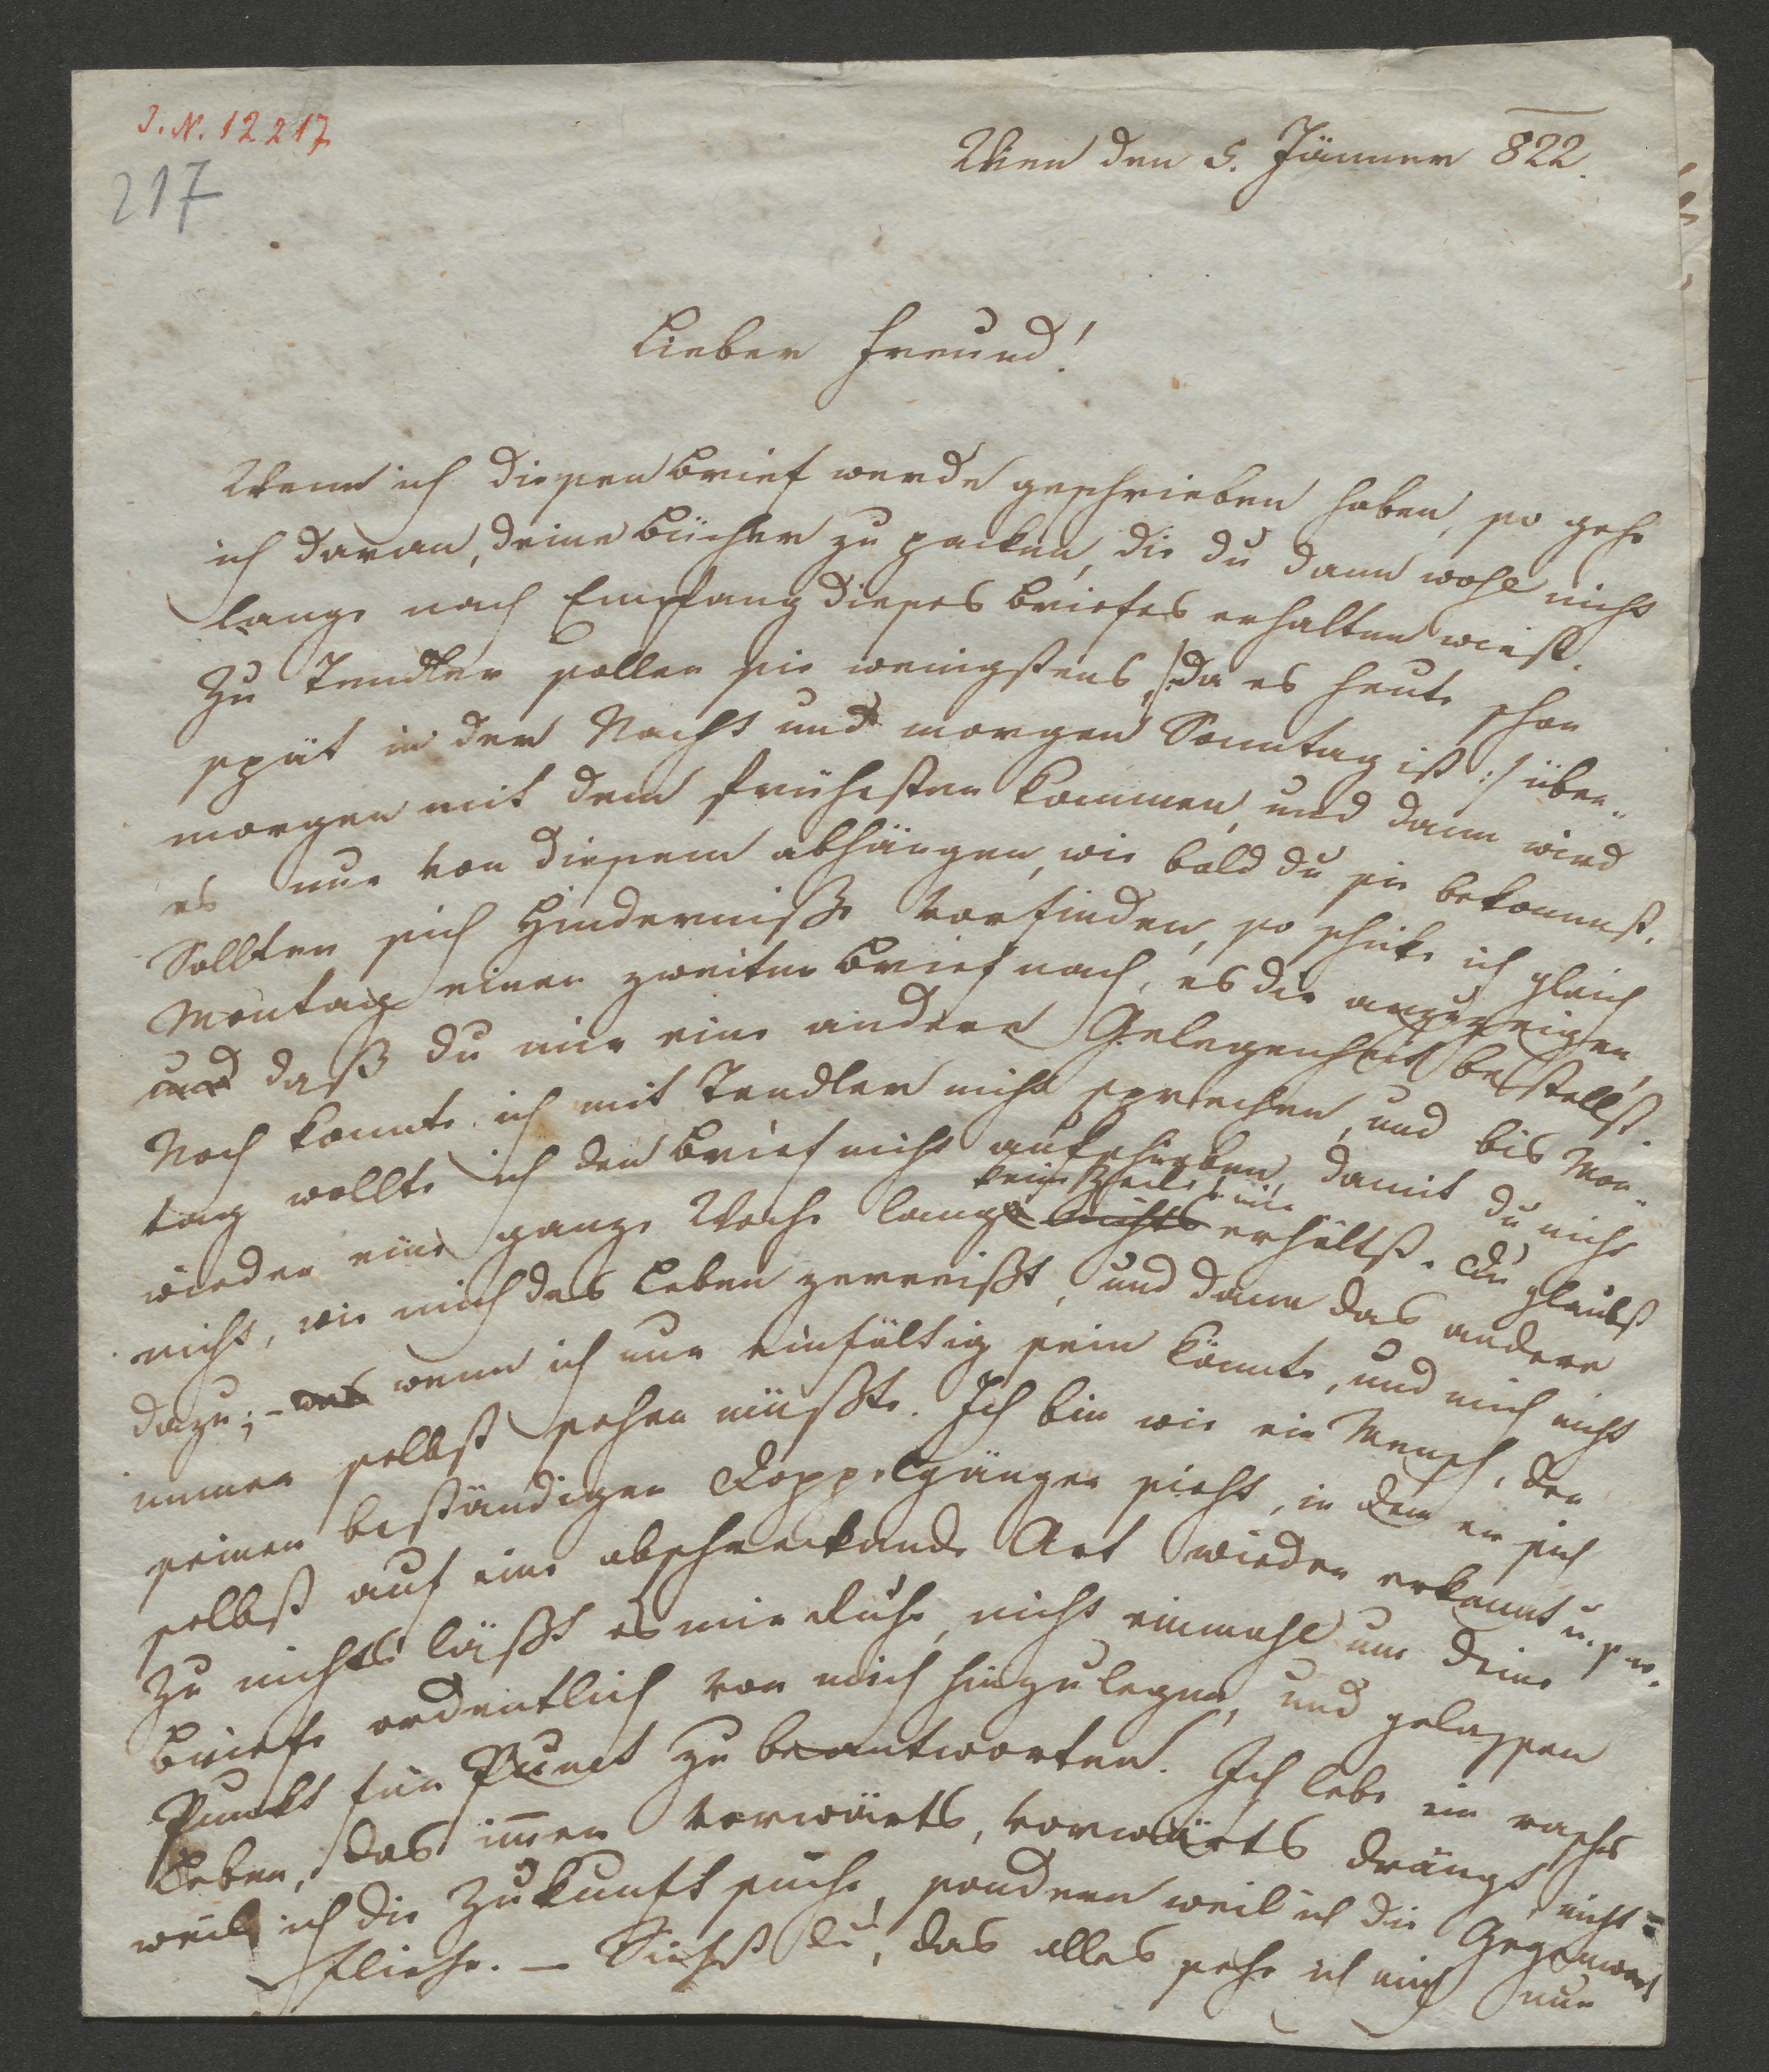 J. N. 12217
217
Wien den 5. Jänner 822.
Lieber Freund!
Wenn ich diesen Brief werde geschrieben haben, so gehe
ich daran, deine Bücher zu packen, die du dann wohl nicht
lange nach Empfang dieses Briefes erhalten wirst.
Zu Tendler sollen sie wenigstens, /: da es heute schon
spät in der Nacht und morgen Sonntag ist :/ über-
morgen mit dem frühesten kommen, und dann wird
es nur von diesem abhängen, wie bald du sie bekommst.
Sollten sich Hinderniße vorfinden, so schike ich gleich
Montag einen zweiten Brief nach, es dir anzuzeigen,
und daß du mir eine andere Gelegenheit bestellst.
Noch konnte ich mit Tendler nicht sprechen, und bis Mon-
tag wollte ich den Brief nicht aufschieben, damit du nicht
keine Zeile v mir
wieder eine ganze Woche lang nichts erhältst. Du glaubst
nicht, wie mich das Leben zerreißt, und dann das andere
dazu; – das wenn ich nur einfältig sein könnte, und mich nicht
immer selbst sehen müßte. Ich bin wie ein Mensch, der
seinen beständigen Doppelgänger sieht, in dem er sich
selbst auf eine abschreckende Art wieder erkennt u. s. w.
Zu nichts läßt es mir Ruhe, nicht einmahl um deine
Briefe ordentlich vor mich hinzulegen, und gelassen
Punkt für Punct zu beantworten. Ich lebe ein rasches
Leben, das im̅er vorwärts, vorwärts drängt nicht
weil ich die Zukunft suche, sondern weil ich die Gegenwart
fliehe. – Siehst du, das alles sehe ich mich nur